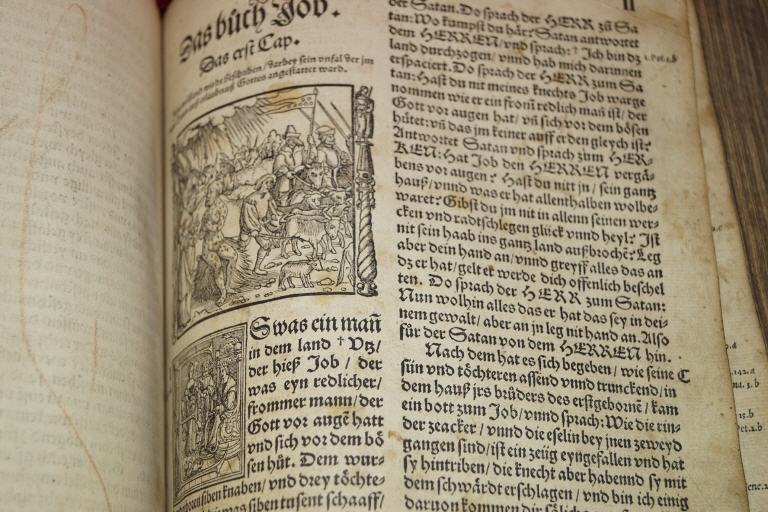 Das bůch Job.
Das erst Cap.
S was ein mañ
in dem land † Vtz/
der hieß Job / der
was eyn redlicher/
frommer mann/ der
Gott vor augẽ hatt
vnd sich vor dem bö
sen hüt. Dem wur-
siben knaben/ vnd drey töchte-
was siben tusent schaaff/
II
der Satan. Do sprach der HERR zů Sa
tan: Wo kumpst du här? Satan antwortet
dem HERREN/ vnd sprach: Ich bin dz
land durchzogen/ vnnd hab mich darinnen
erspaciert. Do sprach der HERR zum Sa
tan: Hast du nit meines knechts Job warge
nommen wie er ein from redlich mañ ist/ der
Gott vor augen hat/ vñ sich vor dem bösen
hůtet: vñ das jm keiner auff erden gleych ist?
Antwortet Satan vnd sprach zum HER-
REN: Hat Job den HERREN vergå-
bens vor augen? Hast du nitt jn/ sein gantz
hauß/ vnnd was er hat allenthalben wolbe-
waret? Gibst du jm nit in allenn seinen wer-
cken vnd radtschlegen glück vnnd heyl? Ist
nit sein haab ins gantz land außbrochẽ? Leg
aber dein hand an/ vnnd greyff alles das an
dz er hat/ gelt er werde dich offenlich beschel
ten. Do sprach der HERR zum Satan:
Nun wolhin alles das er hat das sey in dei-
nem gewalt/ aber an jn leg nit hand an. Also
für der Satan von dem HERREN hin.
Nach dem hat es sich begeben/ wie seine
sün vnd töchteren assend vnnd trunckend/ in
dem hauß jrs brüders des erstgebornẽ/ kam
ein bott zum Job/ vnnd sprach: Wie die rin-
der zeacker/ vnnd die eselin bey jnen zeweyd
gangen sind/ ist ein zeüg eyngefallen vnd hat
sy hintriben/ die knecht aber habennd sy mit
dem schwärdt erschlagen/ vnd bin ich einig
daruon kommen dir
C
1.Pet.5.b